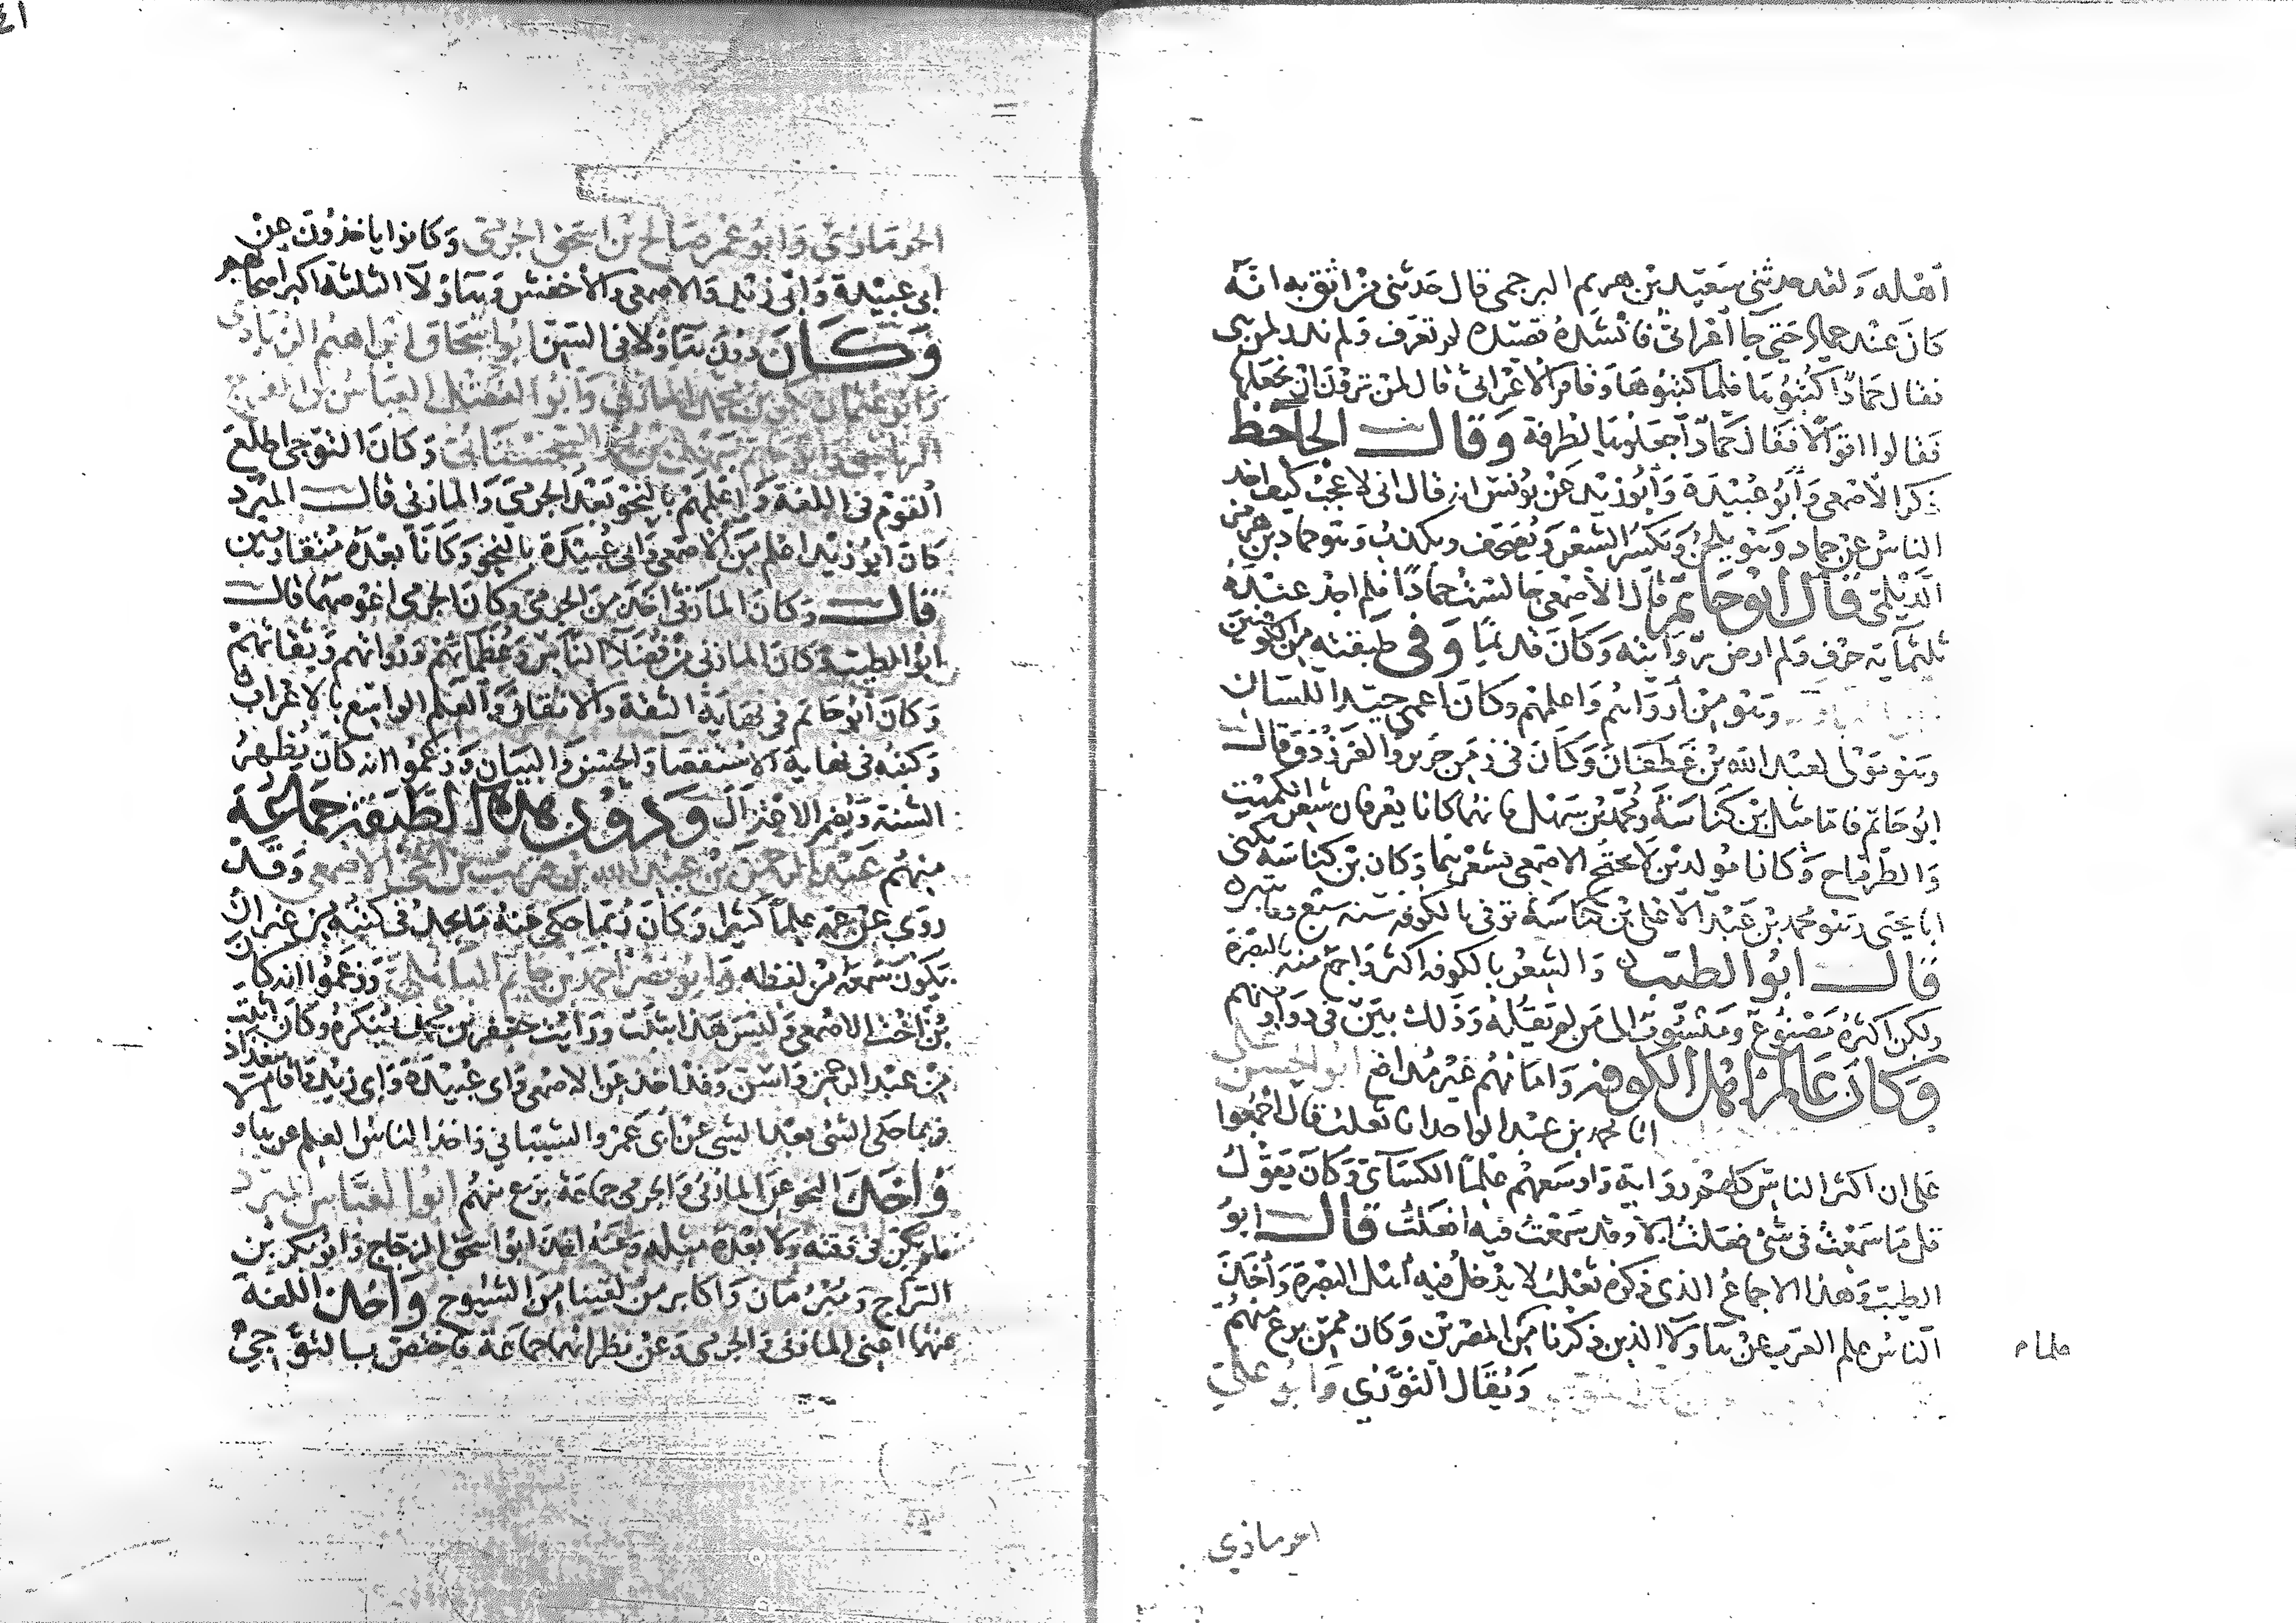 أهله ولقد حدثني سعيد بن هريم البرجمي قال حدثني من اثق به انه
كان عند حماد حتي جا أعرابي فانشده قصيدة لم تعرف ولم ندر لمن هي
فقال حماد اكتبوها فلما كتبوها وقام الاعرابي قال لمن ترون ان نجعلها
فقالوا اقوالا فقال حماد اجعلوها لطرفة وقال الجاحظ
ذكر الأصمعي وأبو عبيدة وأبو زيد عن يونس انه قال اني لاعجب كيف اخذ
الناس عن حماد وهو يلحن ويكسر الشعر ويصحف ويكذب وهو حماد بن هرمز
الديلمي قال ابو حاتم قال الأصمعي جالست حمادا فلم اجد عنده
ثلثماية حرف ولم ارض روايته وكان قديما وفي طبقته من الكوفيين
وهو من أرواهم وأعلمهم وكان اعمي جيد اللسان
وهو مولى لعبد الله بن غطفان وكان في زمن جرير والفرزدق وقال
ابو حاتم فاما مثل بن كناسة ومحمد بن سهل فانهما كانا يعرفان شعر الكميت
والطرماح وكانا مولدين لا يحتج الاصمعي بشعرهما وكان بن كناسة يكنى
ابا يحيى وهو محمد بن عبد الاعلى بن كناسة توفي بالكوفه سنه سبع
قال ابو الطيب والشعر بالكوفه اكثر واجمع منه بالبصرة
ولكن اكثره مصنوع ومنسوب الى من لم يقله وذلك بين في دواوينهم
وكان عالم اهل الكوفه وامامهم غير مدافع ابو الحسن علي
انا محمد بن عبد الواحد انا ثعلب قال اجمعوا
على ان اكثر الناس كلهم رواية واوسعهم علما الكسآي وكان يقول
قل ما سمعت في شي فعلت الا وقد سمعت فيه افعلت قال ابو
الطيب وهذا الاجماع الذي ذكره ثعلب لا يدخل فيه أهل البصرة وأخذ
الناس علم العرب عن هاولا الذين ذكرنا من المصرين وكان ممن برع منهم
ويقال التوزي وابو علي
علماء
الحرمازي
الحرمازي وابو عمر صالح بن اسحق الجرمي وكانوا ياخذون عن
ابي عبيدة وابي زيد والاصمعي والأخفش وهاولا الثلثة اكبر اصحابهم
وكان دون هاولا في السن ابو اسحاق ابراهيم الزيادي
وابو عثمان بكر بن محمد المازني وابو الفضل العباس بن الفرج
الرياشي وابو حاتم سهل بن محمد السجستاني وكان التوجي اطلع
القوم في اللغة وأعلمهم بالنحو بعد الجرمي والمازني قال المبرد
كان ابو زيد اعلم من الأصمعي وابي عبيدة بالنحو وكانا بعده متقاربين
قال وكان المازني احذ من الجرمي وكان الجرمي اغوصهما قال
ابو الطيب وكان المازني من فضلا الناس وعظمائهم ورواتهم وثقاتهم
وكان أبو حاتم في نهاية الثقة والاتقان والعلم الواسع بالاعراب
وكتبه في نهاية الاستقصا والحسن والبيان وزعموا انه كان يظهر
السنة ويضمر الاعتزال ودون هذه الطبقة جماعة
منهم عبد الرحمن بن عبد الله بن قريب بن اخي الاصمعي وقد
روي عن عمه علما كثيرا وكان ربما حكي عنه ما يجد في كتبه من غير ان
يكون سمعه من لفظه وابو نصر أحمد بن حاتم الباهلي وزعموا انه كان
بن أخت الاصمعي وليس هذا بثبت ورايت جعفر بن محمد ينكره وكان اثبت
من عبد الرحمن واسن وقد اخذ عن الاصمعي وابي عبيدة وابي زيد واقام ببغداد
فربما حكى الشي بعد الشي عن أبي عمرو الشيباني واخذ الناس العلم عن هاولا
وأخذ النحو عن المازني والجرمي جماعة برع منهم ابو العباس المبرد
فلم يكن في وقته ولا بعده مثله وعنه اخذ ابو اسحق الزجاج وابو بكر بن
السراج ومبرمان واكابر من لقينا من الشيوخ وأخذ اللغة
عنهما اعني المازني والجرمي وعن نظرائهما جماعة فاختص بالتوجي